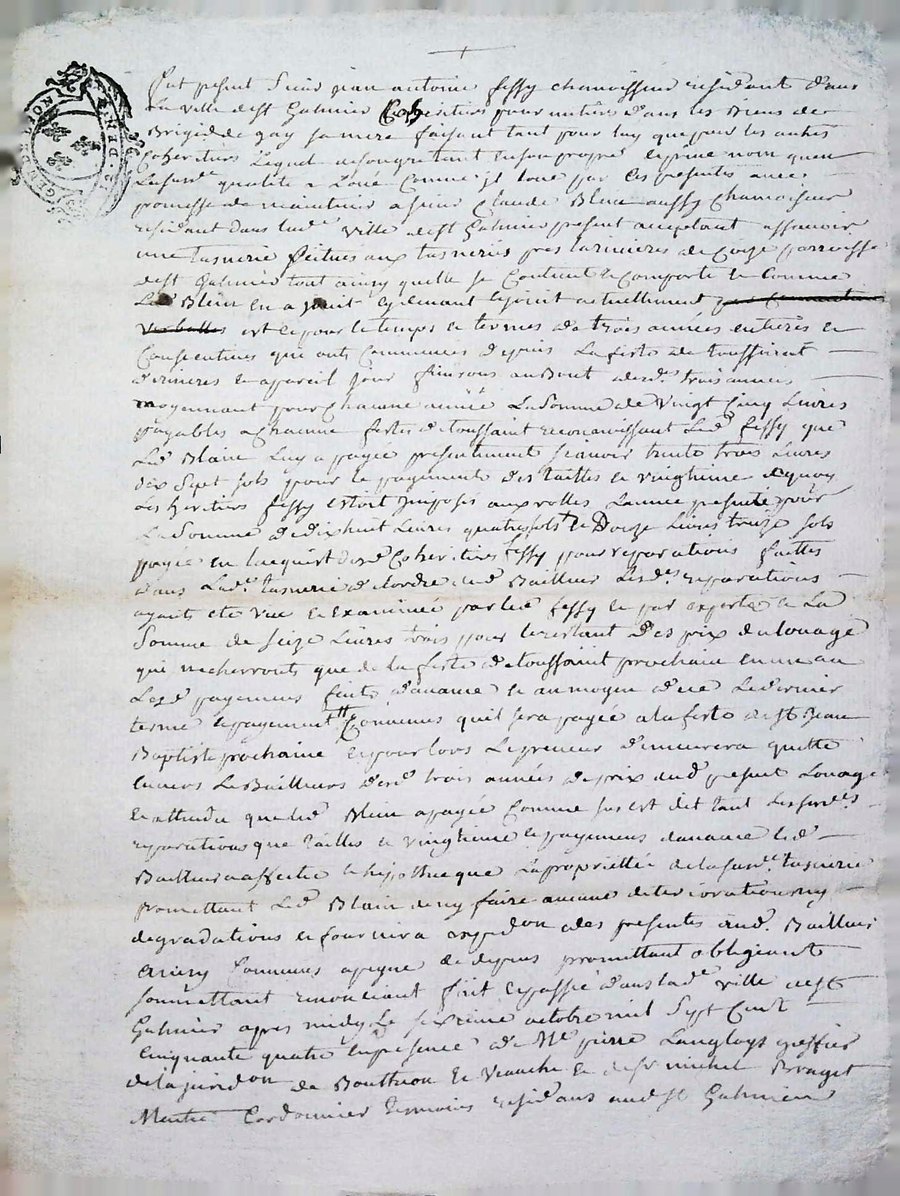 Fut présent Sieur jean antoine fessy chamoisseur residant dans
la ville de st Galmier Coheritier pour moitié dans les Biens de
Brigide gay sa mere faisant tant pour luy que pour les autres
Coheritiers Lequel de son gre tant en son propre et prive nom quen
La susde qualité a Loué Comme jl loue par ces presentes avec
promesse de maintenir a sieur Claude Blein aussy Chamoiseur
residant dans lade ville de st Galmier present acceptant assavoir
une tasnerie scitues aux tasneries pres la riviere de Coize parroisse
de st Galmier tout ainsy quelle se Contient et Comporte et Comme
Led Blein en a jouit cy devant et jouit actuellement par Convention
Verballes est ce pour le temps et termes de trois années entieres et
Consecutives qui ont Commencés depuis La feste de toussaint
dernieres et a pareil jour finisons au Bout desdes trois années
moyennant pour Chacune année La Somme de Vingt Cinq Livres
payables a Chacune festes de toussaint reconnaissant Led fessy que
Led Blain Luy a payée presentement scavoir trente trois Livres
dix Sept sols pour le payement des tailles et vingtieme de quoy
Les heritiers fessy estoit Jmposés aux rolles Lannée presente pour
La Somme de dix huit Livres quatre sols et Douze Livres treize sols
payée en Lacquit desd Coheritiers fessy pour reparations faittes
dans Lade tasnerie de Lordre dud Bailleur Lesdes reparations
ayants eté vue et Examinée par led fessy et par experts et La
Somme de Seize Livres trois pour le restant des prix du louage
qui necherront que de la feste de toussaint prochain en un an
Lesd payemens faits davance et au moyen de ce Le dernier
terme et payement Convenus quil sera payée a la feste de st Jean
Baptiste prochaine et pour lors Le preneur demeurera quitte
envers Le Bailleurs desd trois années de prix dud present Louage
et attendu que led Blein a payée Comme sus est dit tant Les susdes
reparations que tailles et vingtieme et payemens davance led
Bailleur a affectée et hipotheque La proprietté de la susde tasnerie
Promettant Led Blain de ny faire aucune deteriorations ny
degradations et fournira expedon des presentes aud Bailleur
Ainsy Convenus a peyne de depens promettant obligeant
soumettant renonciant fait et passé dans lade ville de st
Galmier apres midy Le sixieme octobre mil Sept Cent
Cinquante quatre en presence de Me pierre Langloys greffier
de la juridon de Bouthéon et Veauche et de sr michel Braget
Maitre Cordonnier temoins residans aud st Galmier